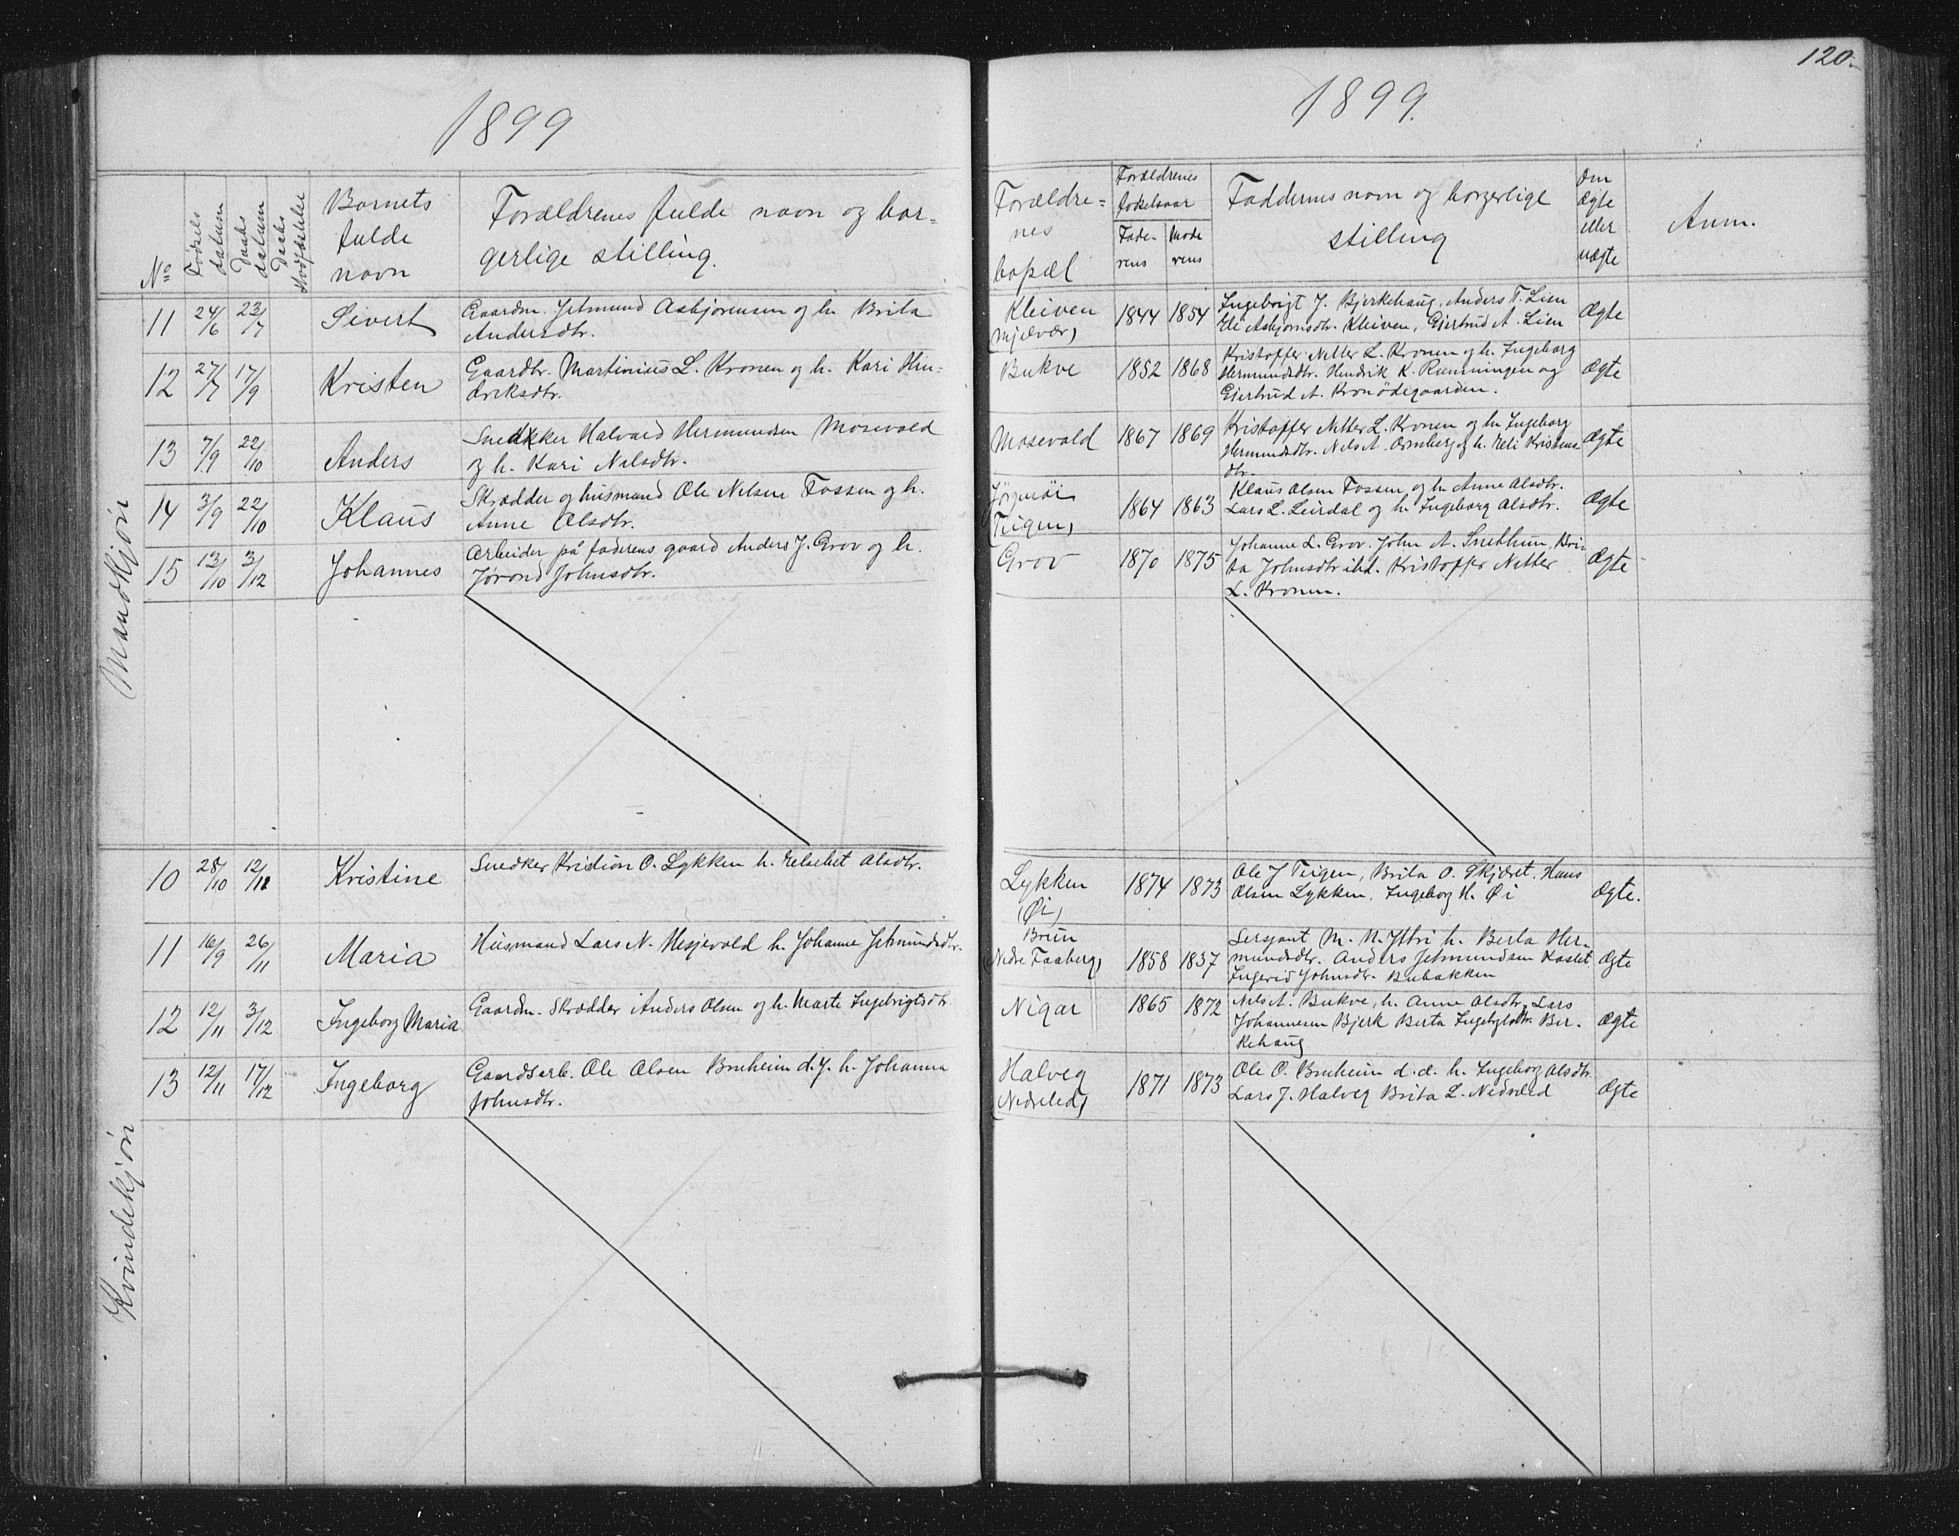 1899
No
Fødsels datum
Daabs datum
Daabs Stadfæstelse
Barnets
fulde
navn
Forældrenes fulde navn og bor-
gerlige stilling.
Mandkjøn
11 24/6 23/7 Sivert Gaardm. Jetmund Asbjørensen og h. Brita
Andersdtr.
12 27/7 17/9 Kristen Gaardbr. Martinius L. Kronen og h. Kari Hin-
driksdtr.
13 7/9 22/10 Anders Snedkker Halvard Hermundsen Mosevold
og h. Kari Nilsdtr.
14 3/9 22/10 Klaus Skrædder og husmand Ole Nelsen Fossen og h.
Anne Olsdtr.
15 13/10 3/12 Johannes Arbeider på faderens gaard Anders J. Grov og h.
Jørond Johnsdtr.
Kvindekjøn
10 28/10 12/11 Kristine Snedker Kristian O. Lykken h. Elsebet Olsdtr.
11 16/9 26/11 Maria Husmand Lars N. Hesjevold h. Johanne Jetmundsdtr.
12 12/11 3/12 Ingeborg Maria Gaardm. Skrædder Anders Olsen og h. Marte Ingebrigtsdtr
13 12/11 17/12 Ingeborg Gaardsarb. Ole Olsen Bruheim d.y. h. Johanna
Johnsdtr.
120.
1899.
Forældre-
nes
bopæl
Forældrenes
fødselsaar
Fade-
rens
Mode
rens
Faddernes navn og borgerlige
stilling
Om
Ægte
eller
uægte
Anm.
Kleiven
(Mjelvær)
1844 1854 Ingebrigt J. Bjerkehaug, Anders T. Lien
Eli Asbjørnsdtr. Kleiven, Gjertrud A. Lien
Ægte
Bukve 1852 1868 Kristoffer Nitter L. Kronen og h. Ingeborg
Hermundsdtr. Hendrik K. Rønningen og
Gjertrud A. Kronødegaarden.
Ægte
Mosevold 1867 1869 Kristoffer Nitter L. Kronen og h. Ingeborg
Hermundsdtr. Nels A. Ornberg og h. Eli Kristens
dtr.
Ægte
Jørgenøi
(Teigen)
1864 1863 Klaus Olsen Fossen og h. Anne Olsdtr.
Lars L. Leirdal og h. Ingeborg Olsdtr.
Ægte
Grov 1870 1875 Johanne L. Grov. John A. Snethun, Bri-
ta Johnsdtr ibd. Kristoffer Nitter
L. Kronen.
Ægte
Lykken
(Øi)
1874 1873 Ole J Teigen, Brita O. Skjæret. Hans
Olsen Lykken, Ingeborg H. Øi
Ægte.
Brun
(Nedre Faaberg)
1858 1837 Sersjant M. N. Yttri h. Berta Her-
mundsdtr. Anders Jetmundsen Kastet
Ingerid Johnsdtr. Bubakken
Ægte
Nigar 1865 1872 Nels A. Bukve, h. Anne Olsdtr, Lars
Johannesen Bjerk Berta Bir-
kehaug
Ægte
Halveg
(Nedrelid)
1871 1873 Ole O. Bruheim d.æ. h. Ingeborg Olsdtr.
Lars J. Halveg Brita L. Nedrelid
Ægte